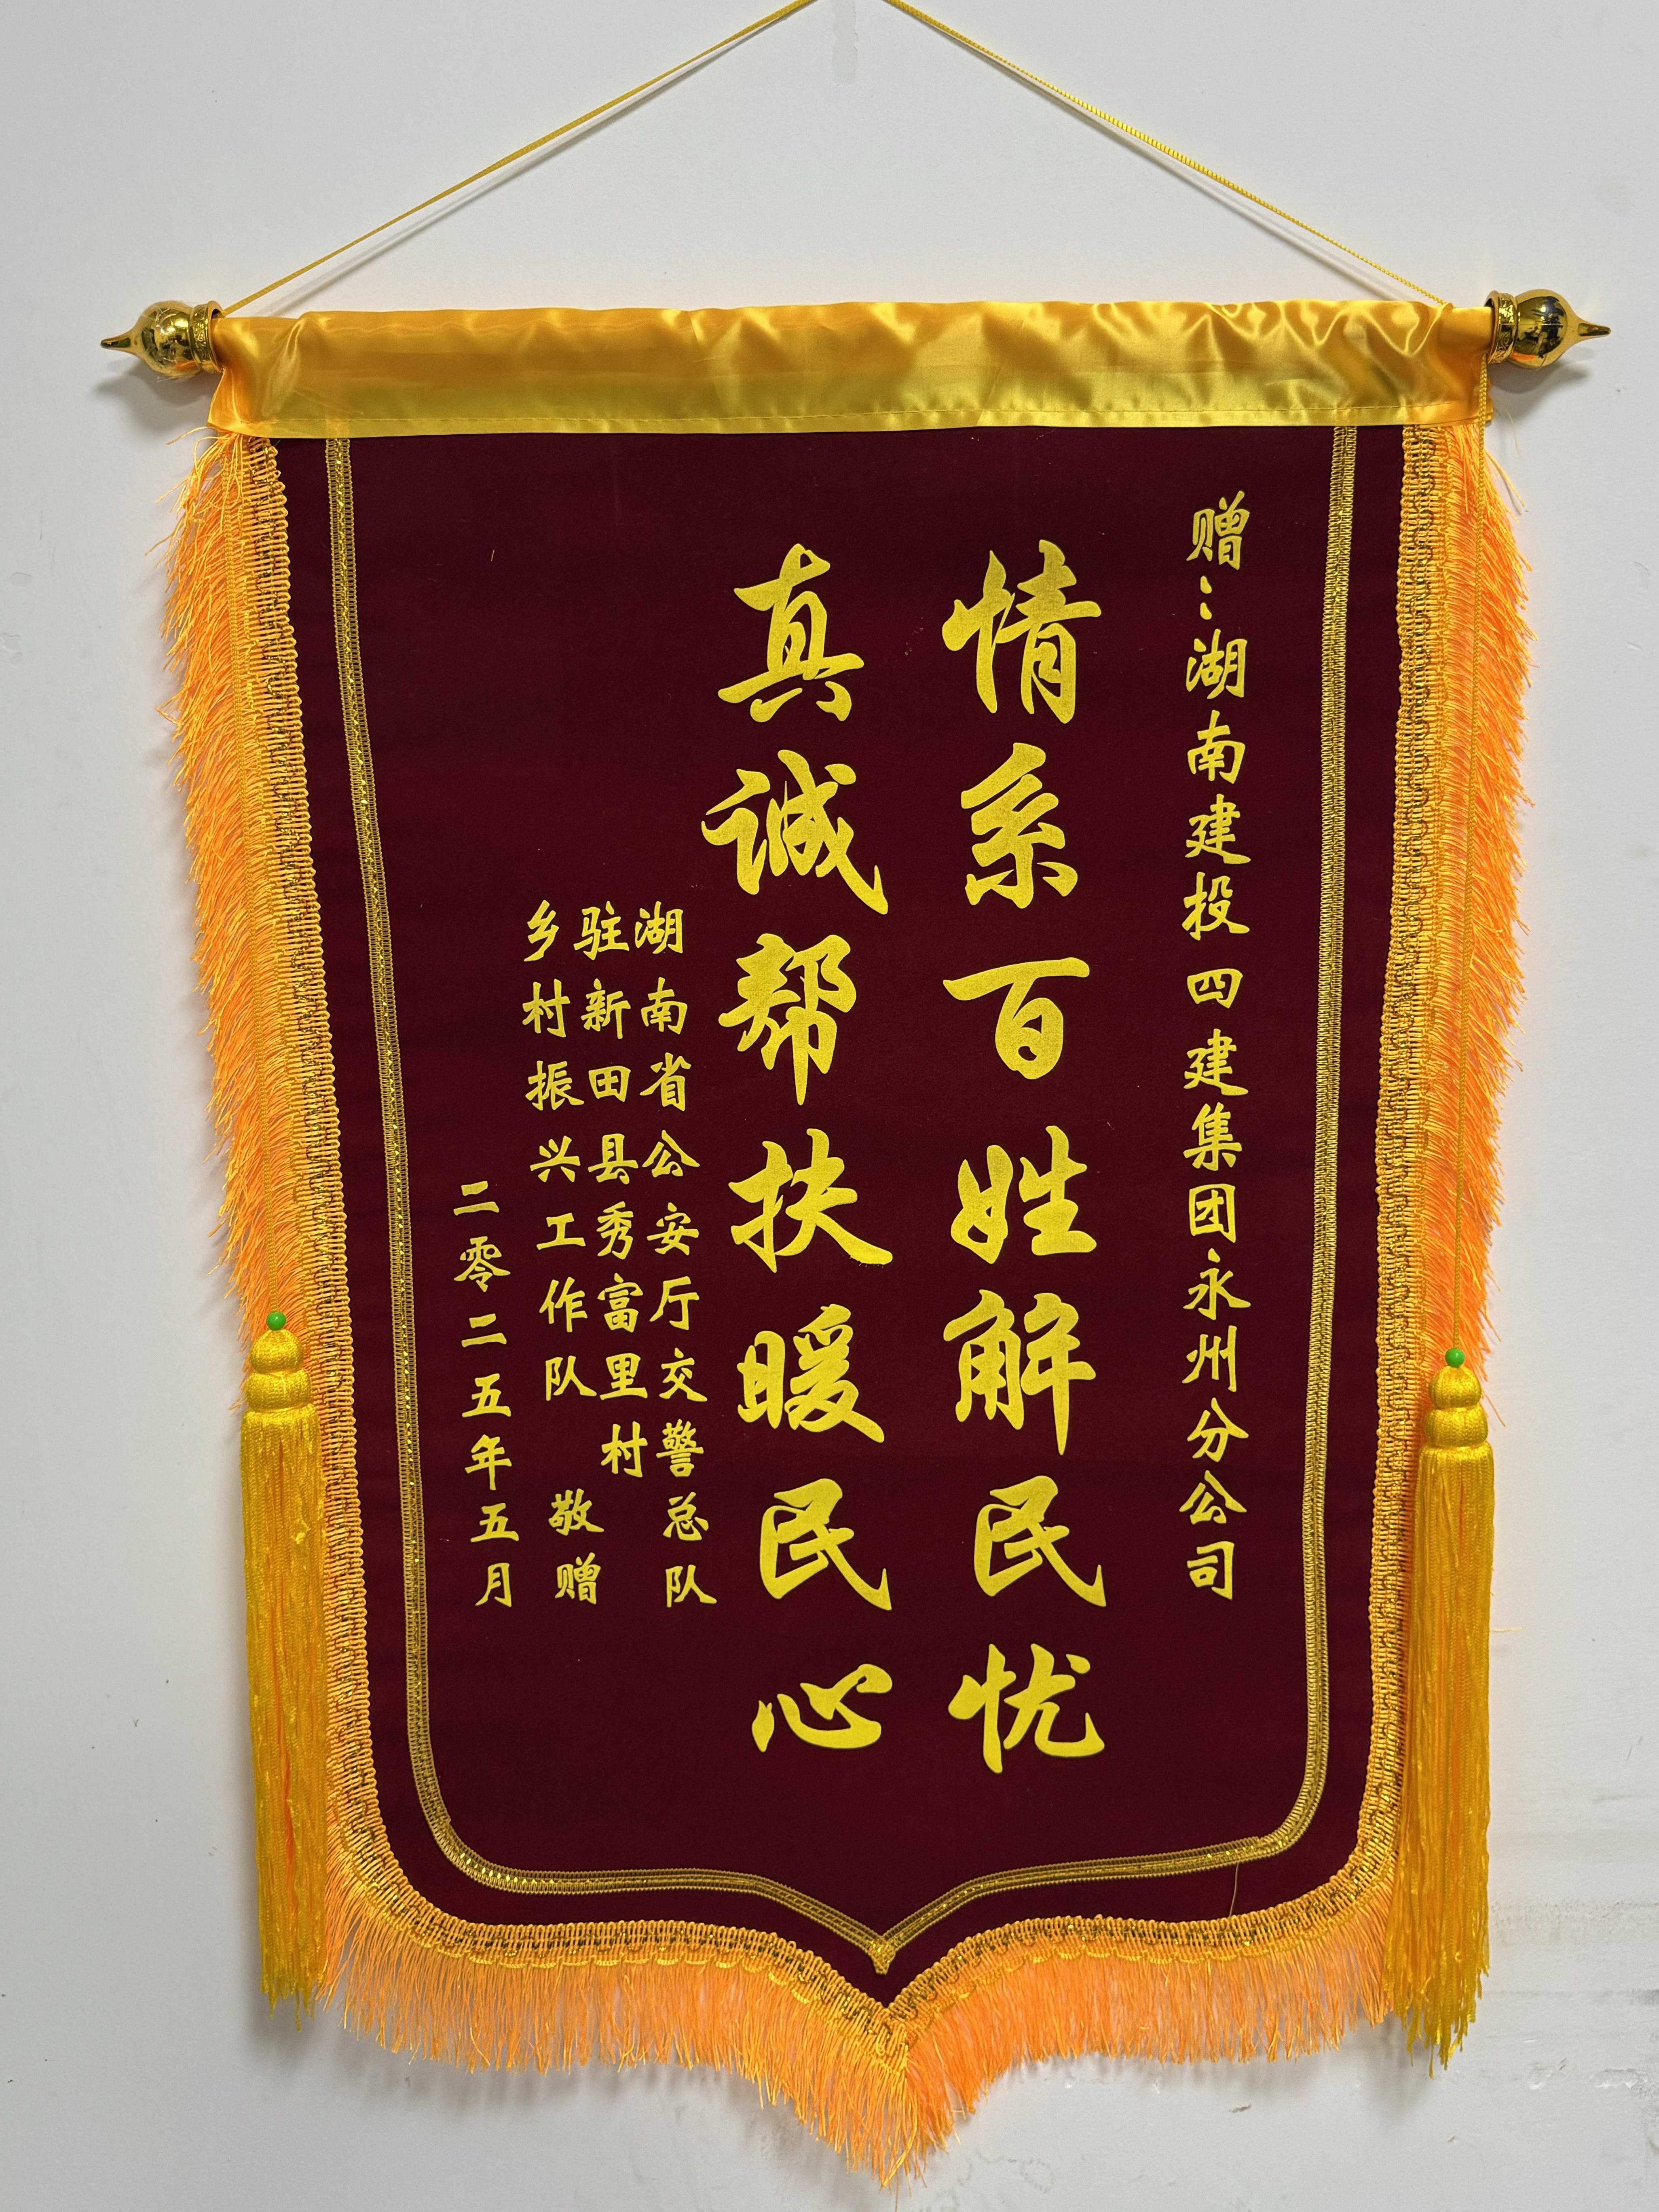 赠：湖南建投四建集团永州分公司
情系百姓解民忧
真诚帮扶暖民心
湖南省公安厅交警总队
驻新田县秀富里村
乡村振兴工作队 敬赠
二零二五年五月